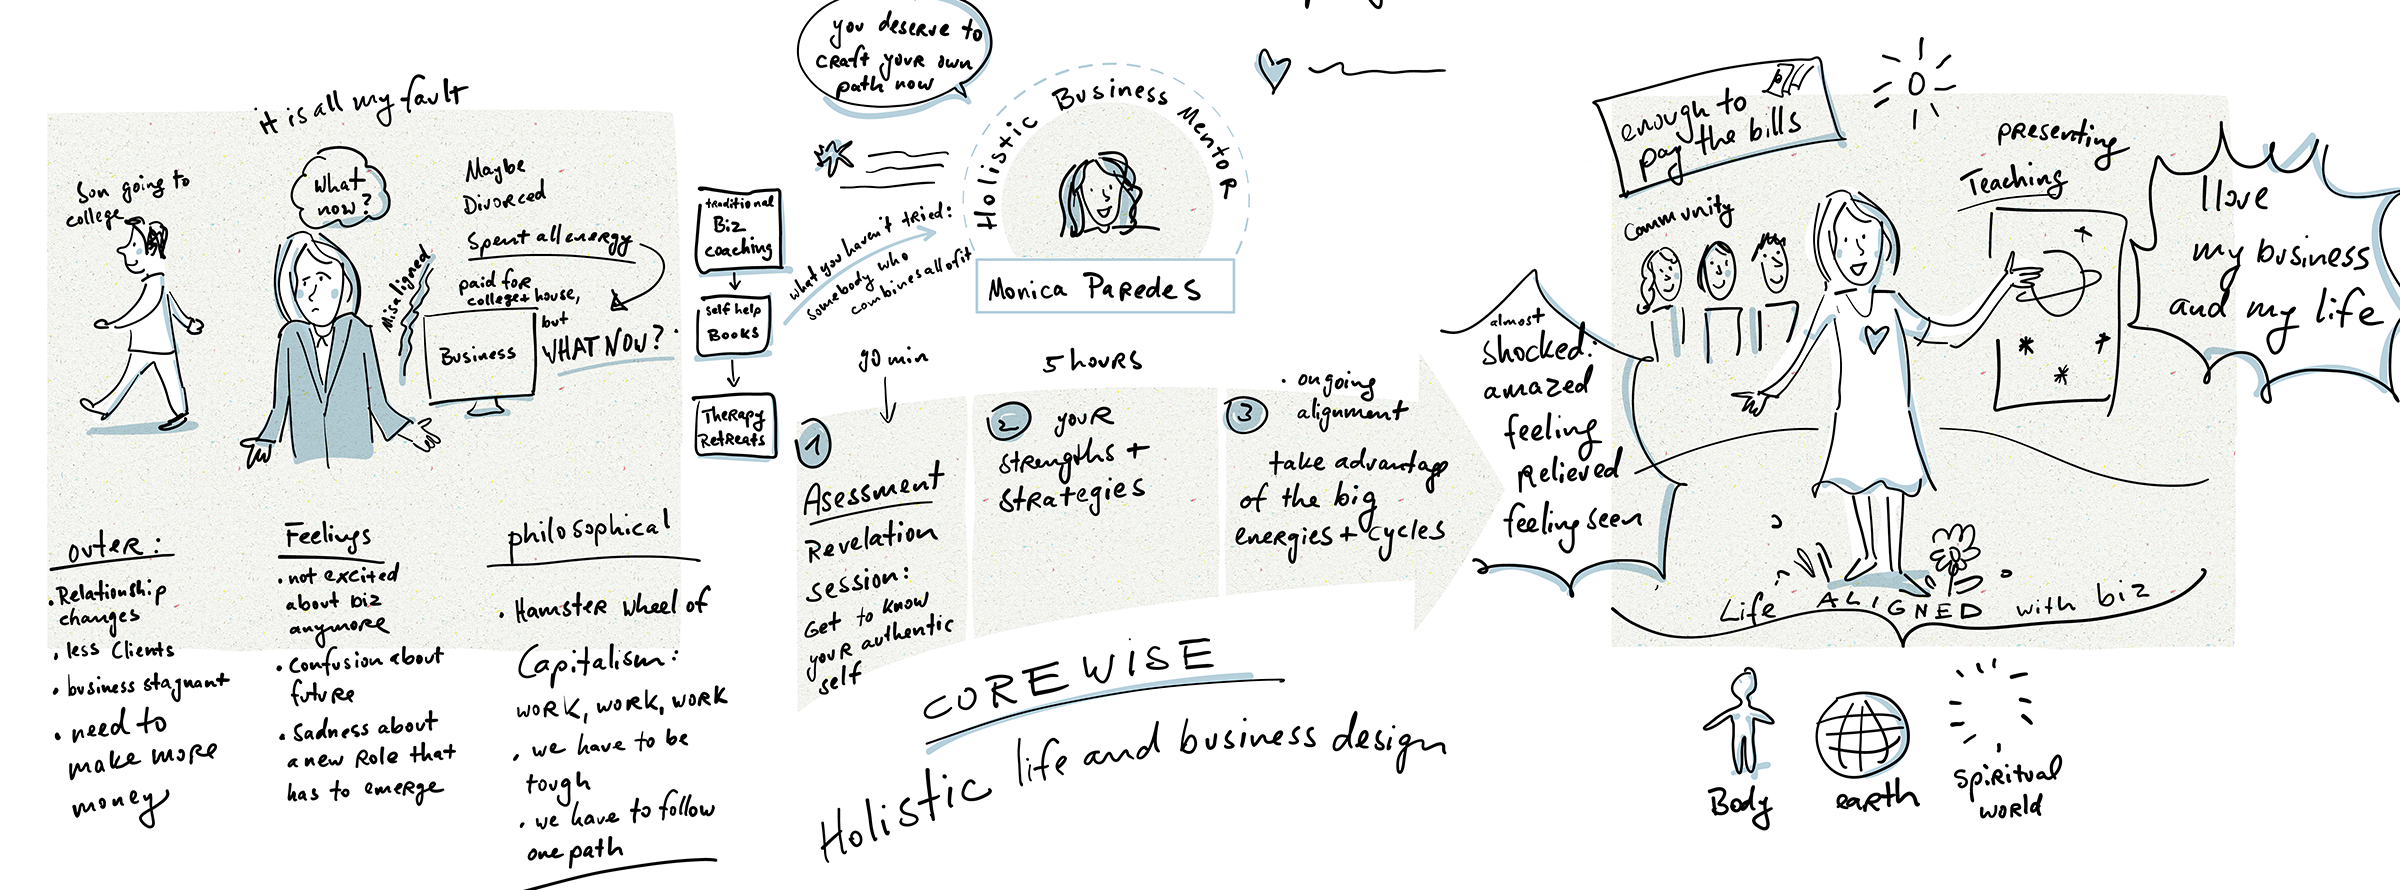 it is all my fault
Son going to
college
What
now?
Misaligned
Maybe
Divorced
Spent all energy
paid for
college + house,
but
WHAT NOW?
Business
outer:
• Relationship
changes
• less Clients
• business stagnant
• need to
make more
money
Feelings
• not excited
about biz
anymore
• Confusion about
future
• Sadness about
a new Role that
has to emerge
philosophical
• Hamster wheel of
Capitalism:
work, work, work
• we have to be
tough
• we have to follow
one path
traditional
Biz
coaching
self help
Books
Therapy
Retreats
you deserve to
craft your own
path now
what you haven't tried:
somebody who
combines all of it
Holistic Business Mentor
Monica Paredes
90 min
1
Asessment
Revelation
session:
Get to know
your authentic
self
5 hours
2
your
strengths +
strategies
3
• ongoing
alignment
take advantage
of the big
energies + cycles
COREWISE
Holistic life and business design
almost
shocked:
amazed
feeling
relieved
feeling seen
enough to
pay the bills
Community
presenting
Teaching
I love
my business
and my life
Life ALIGNED with biz
Body
earth
spiritual
world